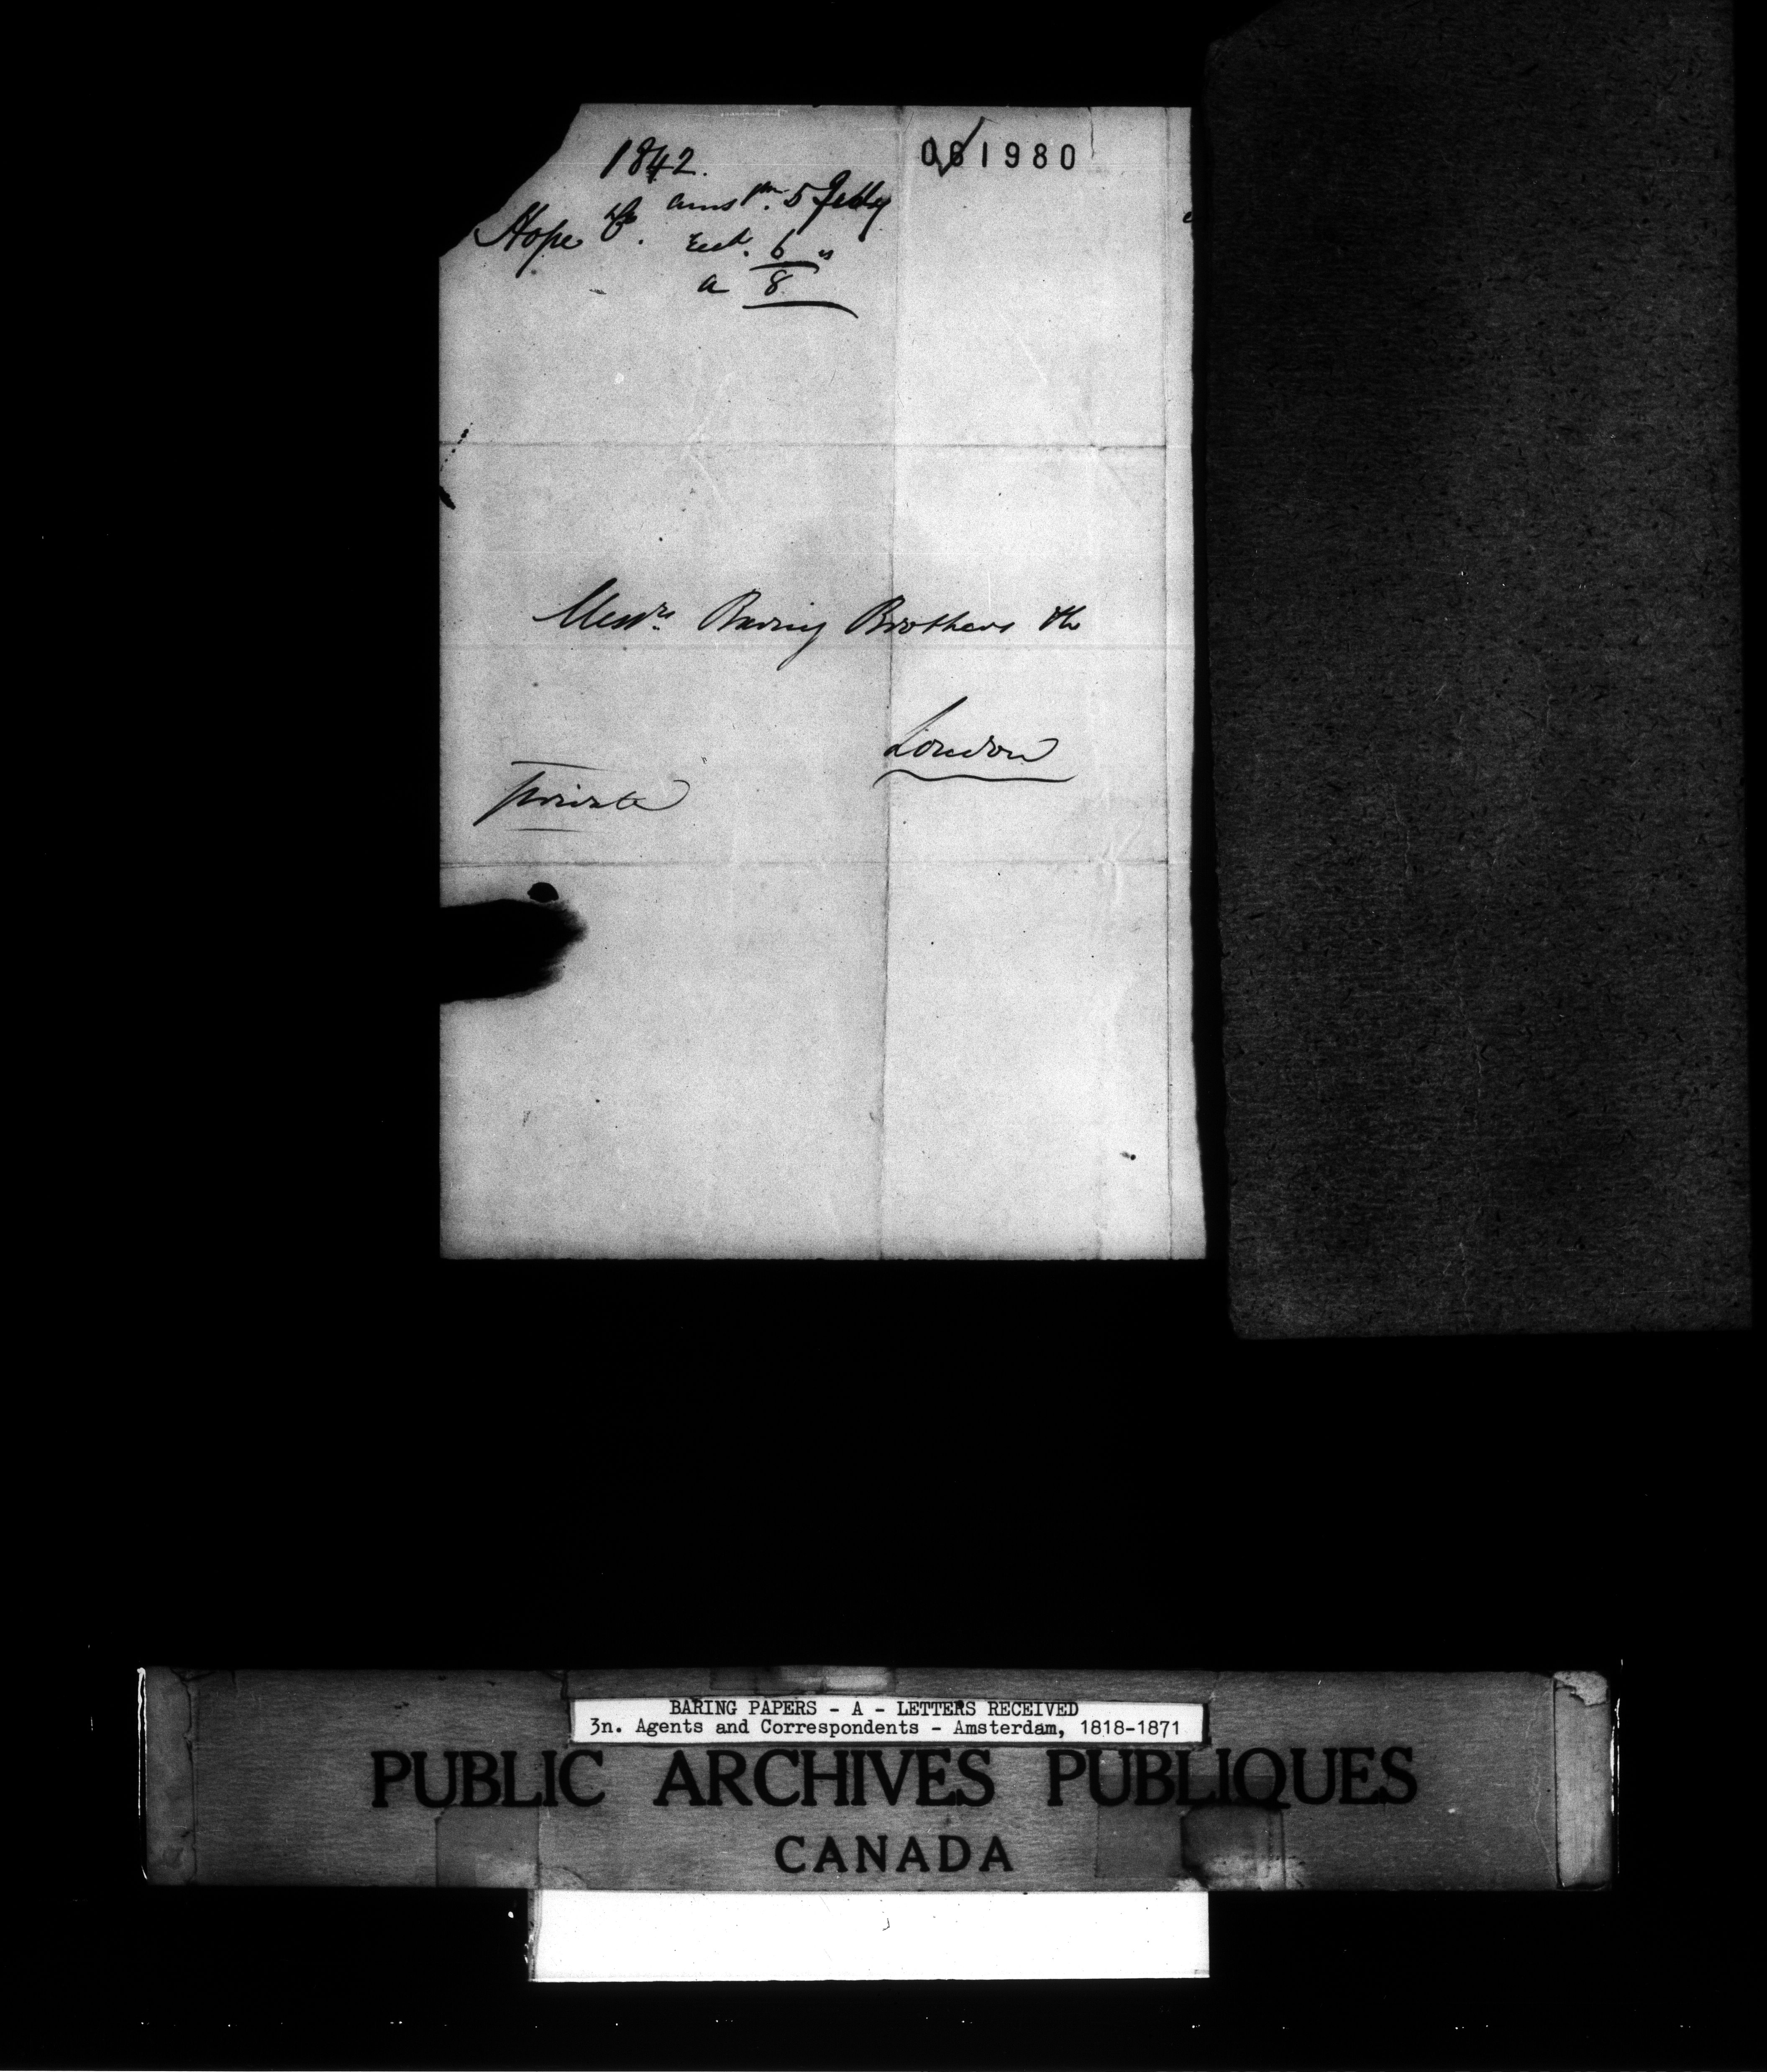 1842.
061980
Hope & Co. Amstm. 5 Feby
Recd. 6 "
a 8
Messrs. Baring Brothers & Co
London
Private
BARING PAPERS - A - LETTERS RECEIVED
3n. Agents and Correspondents - Amsterdam, 1818-1871
PUBLIC ARCHIVES PUBLIQUES
CANADA